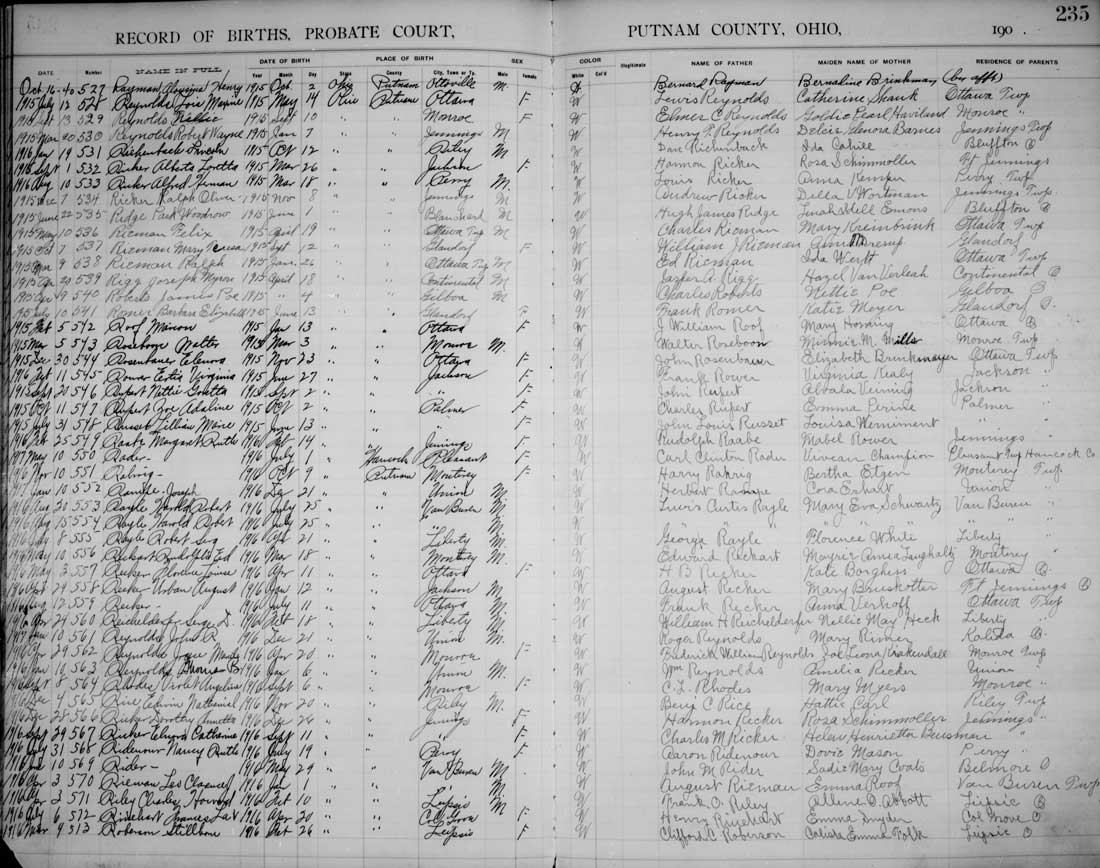 235
RECORD OF BIRTHS, PROBATE COURT, PUTNAM COUNTY, OHIO, 190 .
DATE OF BIRTH PLACE OF BIRTH SEX COLOR
DATE Number NAME IN FULL Year Month Day State County City, Town or Tp. Male Female White Col'd Illegitimate NAME OF FATHER MAIDEN NAME OF MOTHER RESIDENCE OF PARENTS
Oct 16-40 527 Rayman Aloysius Henry 1915 2 Ohio Putnam Ottoville M. W Bernard Rayman Bernadine Brinkman (by affs)
1915 July 12 528 Reynolds Lois Maxine 1915 May 14 Ohio Putnam Ottawa F W Lewis Reynolds Catherine Shank Ottawa Twp
1915 13 529 Reynolds Nellie 1915 Sept 10 " " Monroe F W Elmer C Reynolds Goldie Pearl Haviland Monroe "
1915 Mar 20 530 Reynolds Robert Wayne 1915 Jan 7 " " Jennings M W Henry F. Reynolds Delcie Glenora Barnes Jennings Twp
1916 Jan 19 531 Richenbach Lincoln 1915 Oct 12 " " Riley M W Dan Richenback Ida Cahill Bluffton O
1915 Sept 1 532 Ricker Alberta Loretta 1915 Mar 26 " " F W Harmon Ricker Rosa Schimmoller Ft Jennings
1916 Aug 10 533 Ricker Alfred Herman 1915 Mar 18 " " Perry M. W Louis Ricker Anna Kemper Perry Twp
1915 Dec 7 534 Ricker Ralph Oliver 1915 Nov 8 " " Jennings M W Andrew Ricker Della V Wortman Jennings Twp.
1915 June 22 535 Ridge Park Woodrow 1915 June 1 " " Blanchard M W Hugh James Ridge Linah Idell Emons Bluffton O
1915 May 10 536 Rieman Felix 1915 April 19 " " Ottawa Twp M W Charles Rieman Mary Kreinbrink Ottawa Twp
1915 Oct 7 537 Rieman Mary 1915 Sept 12 " " Glandorf F W William J Rieman Glandorf O
1915 9 538 Rieman Ralph 1915 Jan 26 " " Ottawa Twp M W Ed Rieman Ida Ottawa Twp
1915 Apr 20 539 Rigg Joseph Myron 1915 April 18 " " Continental M W Jasper A. Rigg Hazel Van Verleah Continental O
1915 Apr 19 540 Roberts James Poe 1915 " 4 " " Gilboa M W Charles Roberts Nettie Poe Gilboa O
1915 July 10 541 Romer Barbara Elizabeth 1915 June 13 " " Glandorf F W Frank Romer Katie Meyer Glandorf O.
1915 Feb 5 542 Roof Marion 1915 Jan 13 " " Ottawa F W J William Roof Mary Horning Ottawa O
1915 Mar 5 543 Roseboom Walter 1915 Mar 3 " " Monroe M. W Walter Roseboom Minnie M. Mills Monroe Twp
1915 Dec 30 544 Rosenbauer Elenora 1915 Nov 23 " " Ottawa F W John Rosenbauer Elizabeth Brinkmeyer Ottawa Twp
1916 Feb 11 545 Rower Virginia 1915 Jan 27 " " Jackson F W Frank Rower Virginia Kealy Jackson "
1915 Sept 20 546 Rupert Nettie 1915 Sept 2 " " " F W John Rupert Jackson "
1915 Oct 11 547 Rupert Zoe Adaline 1915 Oct 2 " " Palmer F W Charles Rupert Emma Perine Palmer "
1915 July 31 548 Russet Lillian Marie 1915 June 13 " " " F W John Louis Russet Louisa " "
1916 Feb 25 549 Raabe Margaret Ruth 1916 Feb 14 " " Jennings F W Rudolph Raabe Mabel Rower Jennings "
1917 May 10 550 Rader - 1916 July 1 " Hancock Pleasant F W Carl Clinton Rader Vivean Champion Pleasant Twp Hancock Co
1916 Nov 10 551 Rahrig - 1916 Oct 9 " Putnam Monterey F W Harry Rahrig Bertha Etgen Monterey Twp.
1917 Jan 10 552 Rampe - Joseph 1916 Dec 21 " " Union M W Herbert Rampe Cora Eahart Union "
1916 Aug 20 553 Rayle Harold Robert 1916 July 25 " " Van Buren M W Lewis Curtis Rayle Mary Eva Schwartz Van Buren "
1916 Aug 15 554 Rayle Harold Robert 1916 July 25 " " " M W " " " "
1916 8 555 Rayle Robert 1916 Apr 21 " " Liberty M W George Rayle Florence White Liberty "
1916 May 10 556 Reckart Ed 1916 Mar 18 " " Monterey M. W Edward Reckart Monterey "
1916 May 3 557 Recker Florence Louise 1916 Apr 11 " " Ottawa F W H B Recker Kate Borghess Ottawa O.
1916 29 558 Recker Urban August 1916 12 " " Jackson M W August Recker Mary Bruskotter Ft Jennings O
1916 Aug 12 559 Recker - 1916 July 11 " " Ottawa M W Frank Recker Anna Verhoff Ottawa Twp
1916 24 560 Reichelderfer D. 1916 Oct 18 " " Liberty M W William H Reichelderfer Nellie May Heck Liberty "
1917 Jan 10 561 Reynolds John R 1916 Dec 21 " " Union M. W Roger Reynolds Mary Rimer Kalida O.
1916 Apr 29 562 Reynolds 1916 Apr 20 " " Monroe F W Frederick William Reynolds Leona Krakendall Monroe Twp
1916 Jan 10 563 Reynolds 1916 Jan 6 " " Union M. W Wm Reynolds Amelia Recker Union "
1916 Sept 8 564 Rhodes Violet Angeline 1916 Sept 6 " " Monroe F W C.L. Rhodes Mary Myers Monroe "
1916 Dec 4 565 Rice Edwin Nathaniel 1916 Nov 20 " " Riley M. W Benj C Rice Hattie Carl Riley Twp
1916 Dec 28 566 Ricker Dorothy 1916 Dec 26 " " Jennings F W Harmon Recker Rosa Schimmoller Jennings "
1916 Sept 29 567 Ricker Catherine 1916 Sept 11 " " " F W Charles M Ricker Helen Henrietta Beusman " "
1916 July 31 568 Ridenour Nancy Ruth 1916 July 19 " " Perry F W Aaron Ridenour Dovie Mason Perry "
1916 10 569 Rider - 1916 May 29 " " Van Buren M W John M Rider Sadie Mary Coats Belmore O
1916 Apr 3 570 Rieman Les 1916 Jan 1 " " " M W August Rieman Emma Roof Van Buren Twp
1916 3 571 Riley Charles Howard 1916 Feb 10 " " Leipsic M W Frank O. Riley Allene O. Abbott Leipsic O
1916 July 6 572 Rinehart 1916 Apr 20 " " Col. Grove F W Henry Rinehart Emma Snyder Col Grove O
1916 Mar 9 573 Roberson Stillborn 1916 Feb 26 " " Leipsic F W Clifford C Roberson Calista Emma Folk Leipsic O